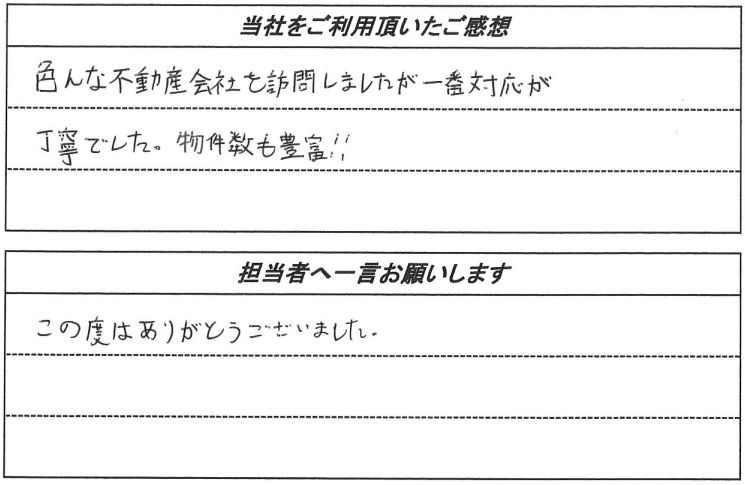 当社をご利用頂いたご感想
色んな不動産会社を訪問しましたが一番対応が
丁寧でした。物件数も豊富!!
担当者へ一言お願いします
この度はありがとうございました。